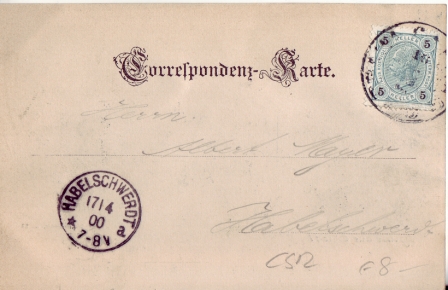 5 5
5 5
Correspondenz-Karte.
Herrn
Albert Mayer
HABELSCHWERDT
17/4
00
7-8V a
Habelschwerdt
CSR €8-